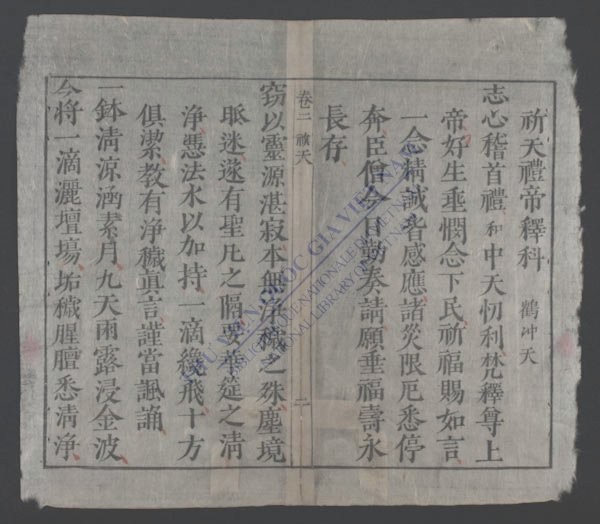 祈天禮帝釋科 鶴冲天
志心稽首禮 和 中天忉利梵釋尊上
帝好生垂憫念下民祈福賜如言
一念精誠皆感應諸災限厄悉停
奔臣僧今日勤奏請願垂福壽永
長存
卷二 禱天
二
窃以靈源湛寂本無淨穢之殊塵境
眂迷遂有聖凡之隔要華筵之清
淨憑法水以加持一滴纔飛十方
俱潔教有淨穢真言謹當諷誦
一鉢清涼涵素月九天雨露浸金波
今將一滴灑壇場垢穢腥膻悉清淨
THƯ VIỆN QUỐC GIA VIỆT NAM
BIBLIOTHEQUE NATIONALE DU VIETNAM
NATIONAL LIBRARY OF VIETNAM